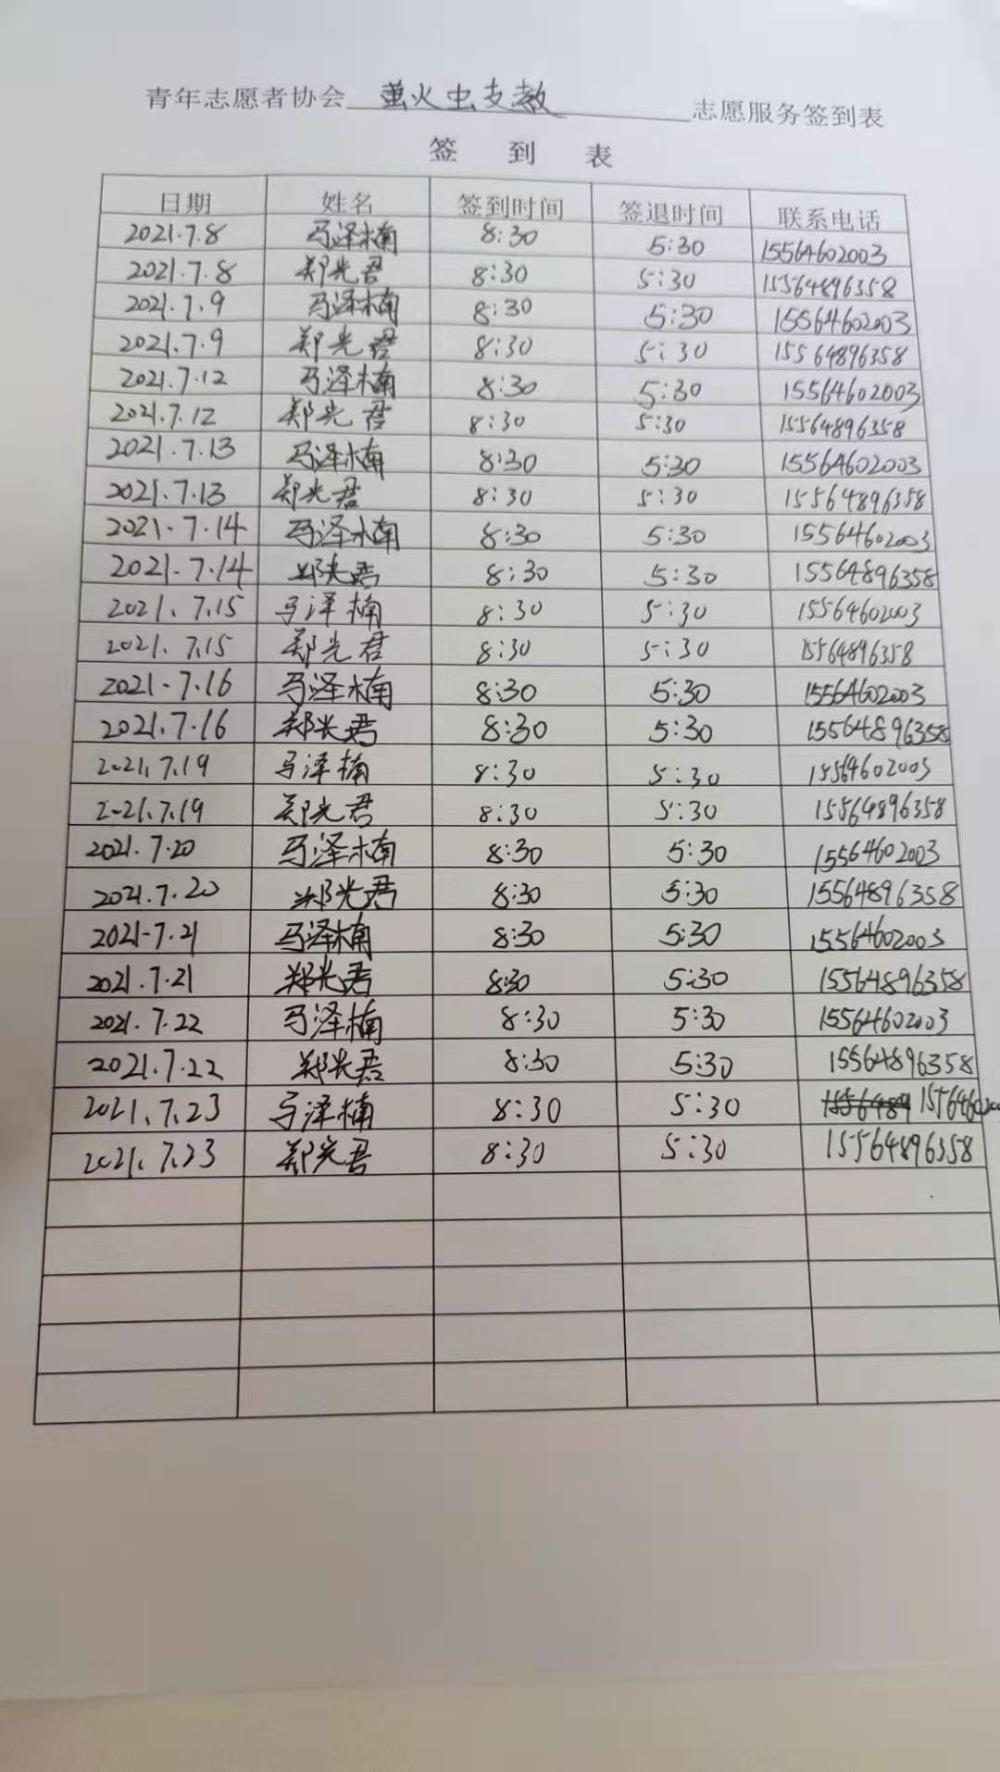 青年志愿者协会 萤火虫支教 志愿服务签到表
签 到 表
日期 姓名 签到时间 签退时间 联系电话
2021.7.8 马泽楠 8:30 5:30 15564602003
2021.7.8 郑光君 8:30 5:30 15564896358
2021.7.9 马泽楠 8:30 5:30 15564602003
2021.7.9 郑光君 8:30 5:30 15564896358
2021.7.12 马泽楠 8:30 5:30 15564602003
2021.7.12 郑光君 8:30 5:30 15564896358
2021.7.13 马泽楠 8:30 5:30 15564602003
2021.7.13 郑光君 8:30 5:30 15564896358
2021.7.14 马泽楠 8:30 5:30 15564602003
2021.7.14 郑光君 8:30 5:30 15564896358
2021.7.15 马泽楠 8:30 5:30 15564602003
2021.7.15 郑光君 8:30 5:30 15564896358
2021.7.16 马泽楠 8:30 5:30 15564602003
2021.7.16 郑光君 8:30 5:30 15564896358
2021.7.19 马泽楠 8:30 5:30 15564602003
2021.7.19 郑光君 8:30 5:30 15564896358
2021.7.20 马泽楠 8:30 5:30 15564602003
2021.7.20 郑光君 8:30 5:30 15564896358
2021.7.21 马泽楠 8:30 5:30 15564602003
2021.7.21 郑光君 8:30 5:30 15564896358
2021.7.22 马泽楠 8:30 5:30 15564602003
2021.7.22 郑光君 8:30 5:30 15564896358
2021.7.23 马泽楠 8:30 5:30
2021.7.23 郑光君 8:30 5:30 15564896358